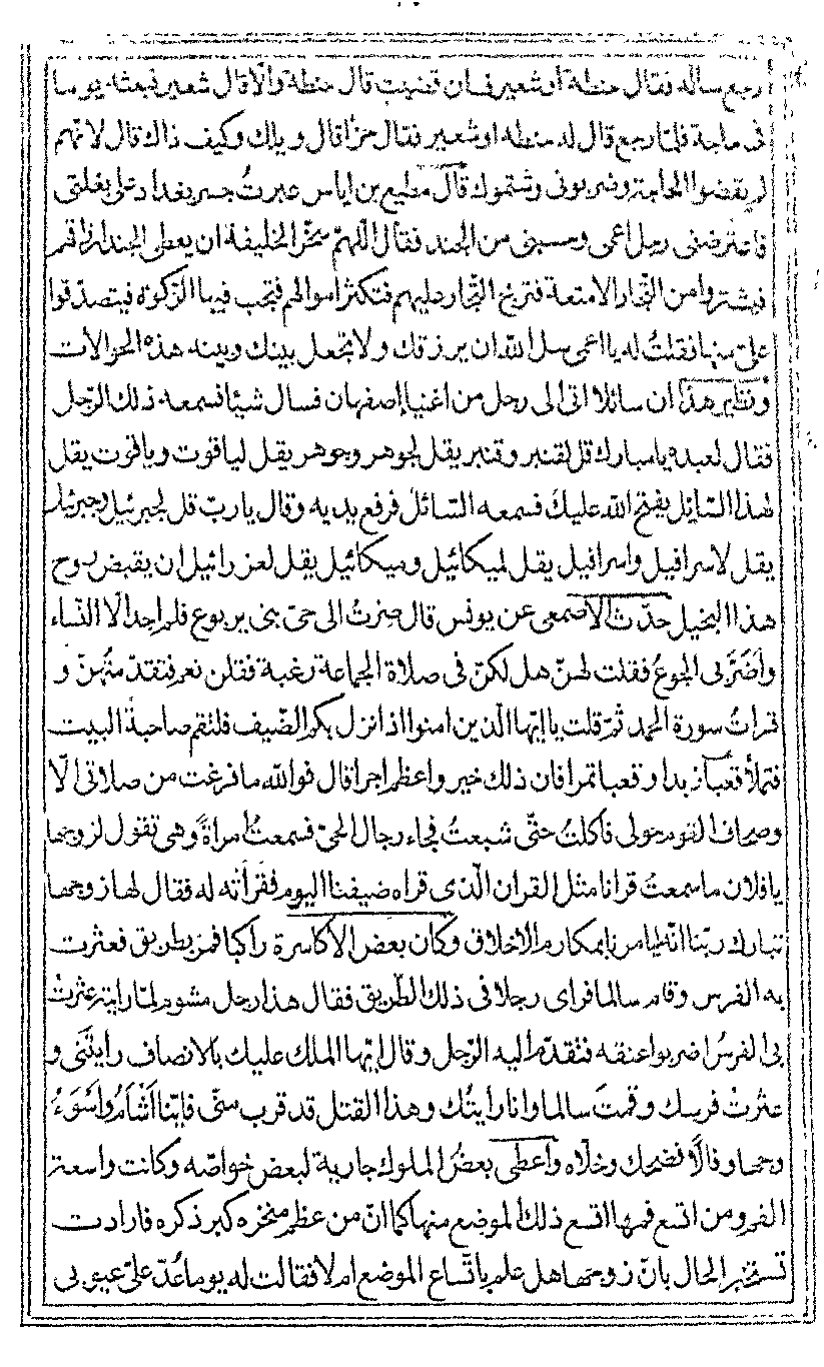 رجع ساله فقال حنطة أو شعير فان قضيت قال حنطة والّا قال شعير فبعثه يوما
فى حاجة فلمّا رجع قال له حنطه او شعير فقال خرا قال ويلك وكيف ذاك قال لانهم
لم يقضوا الحاجة وضربونى وشتموك قال مطيع بن اياس عبرتُ جسر بغداد على بغلتى
فاعترضنى رجل اعمى وحسبنى من الجند فقال اللّهمّ سخّر الخليفة ان يعطى الجند ارزاقهم
فيشتروا من التجّار الامتعة فتربح التجّار عليهم فتكثر اموالهم فتجب فيها الزكوة فيتصدّقوا
علىّ منها فقلتُ له يا اعمى سل اللّه ان يرزقك ولا تجعل بينك وبينه هذه الحوالات
ونظير هذا ان سائلا اتى الى رجل من اغنيا اصفهان فسال شيئا فسمعه ذلك الرّجل
فقال لعبده يا مبارك قل لقنبر وقنبر يقل لجوهر وجوهر يقل لياقوت وياقوت يقل
لهذا السّائل يفتح اللّه عليك فسمعه السّائل فرفع يديه وقال يا ربّ قل لجبرئيل وجبرئيل
يقل لاسرافيل واسرافيل يقل لميكائيل وميكائيل يقل لعزرائيل ان يقبض روح
هذا البخيل حدّث الاصمعى عن يونس قال صرتُ الى حىّ بنى يربوع فلم اجد الّا النّساء
واضَرّبى الجوعُ فقلت لهنّ هل لكنّ فى صلاة الجماعة رغبة فقلن نعم فتقدّمتُهنّ و
قراتُ سورة الحمد ثمّ قلت يا ايّها الّذين امنوا اذا نزل بكم الضّيف فلتقم صاحبة البيت
فتملأ قعبا زبدا وقعبا تمرا فان ذلك خير واعظم اجرا قال فوالله ما فرغت من صلاتى الّا
وصحاف القوم حولى فاكلتُ حتّى شبعتُ فجاء رجال الحىّ فسمعتُ امراةً وهى تقول لزوجها
يا فلان ما سمعتُ قرانا مثل القران الّذى قراه ضيفنا اليوم فقرأته له فقال لها زوجها
تبارك ربّنا انّه ليامرنا بمكارم الاخلاق وكان بعض الاكاسرة راكبا فمرّ بطريق فعثرت
به الفرس وقام سالما فراى رجلا فى ذلك الطّريق فقال هذا رجل مشوم لمّا رايته عثرتْ
بى الفرسُ اضربوا عنقه فتقدّم اليه الرّجل وقال ايّها الملك عليك بالانصاف رايتَنى و
عثرتْ فرسك وقمتَ سالما وانا رأيتُك وهذا القتل قد قرب منّى فايّنا اَشْأَمُ واَسْوَءُ
وجها وفالًا فضحك وخلّاه واعطى بعضُ الملوك جارية لبعض خواصّه وكانت واسعة
الفم ومن اتسع فمها اتسع ذلك الموضع منها كما انّ من عظم منخره كبر ذكره فارادت
تستخبر الحال بانّ زوجها هل علم باتّساع الموضع ام لا فقالت له يوما عُدّ علىّ عيوبى